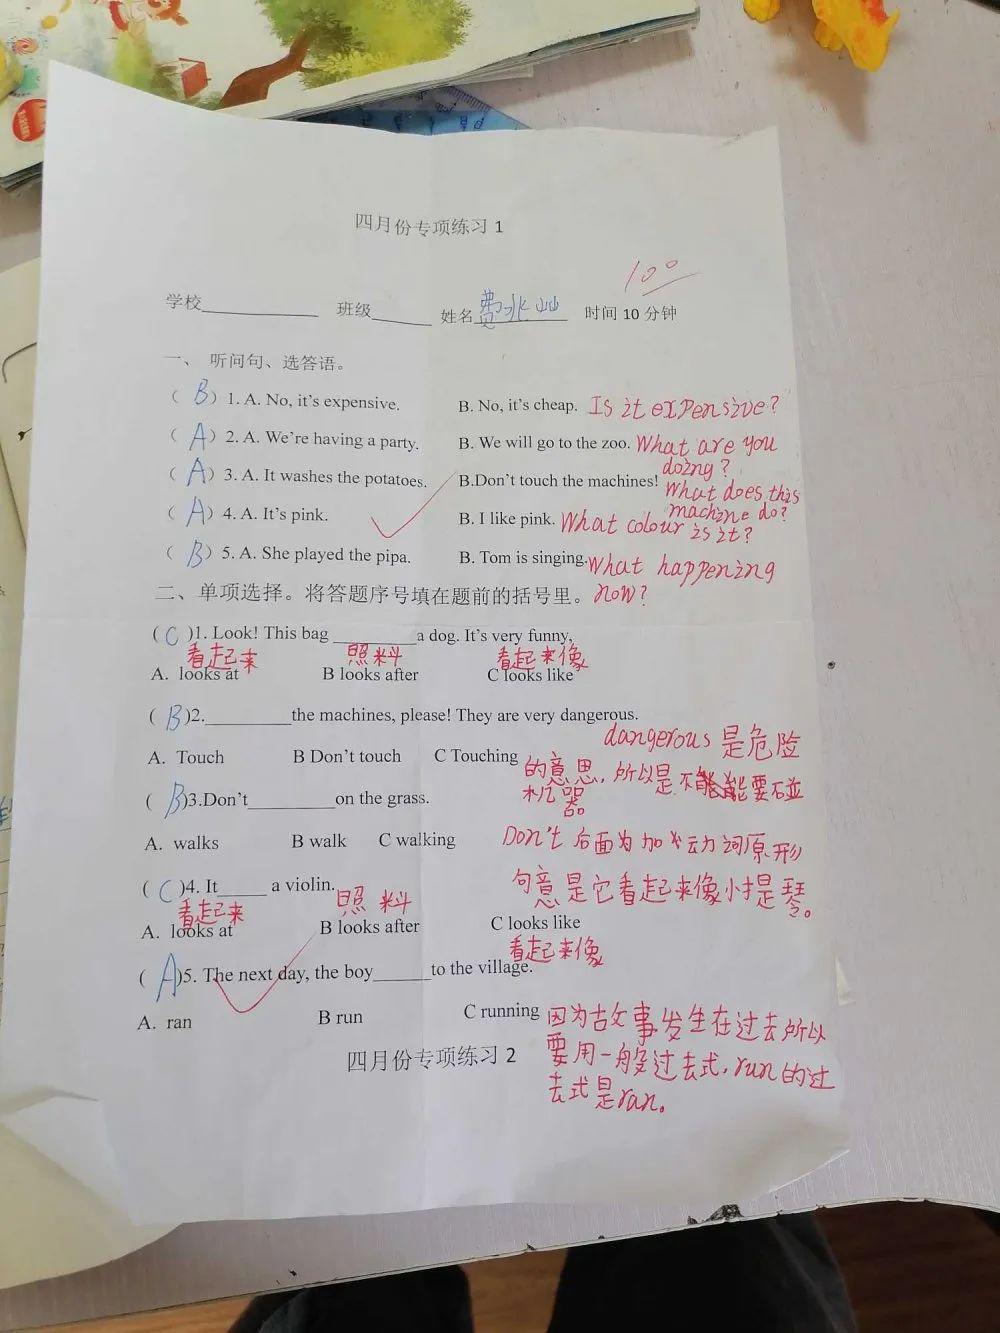 四月份专项练习 1
100
学校 班级 姓名 费 时间 10 分钟
一、 听问句、选答语。
( B ) 1. A. No, it's expensive. B. No, it's cheap. Is it expensive?
( A ) 2. A. We're having a party. B. We will go to the zoo. What are you
doing?
( A ) 3. A. It washes the potatoes. B.Don't touch the machines! What does this
machine do?
( A ) 4. A. It's pink. B. I like pink. What colour is it?
( B ) 5. A. She played the pipa. B. Tom is singing. What happening
now?
二、单项选择。将答题序号填在题前的括号里。
( C )1. Look! This bag _________a dog. It's very funny,
看起来 照料 看起来像
A. looks at B looks after C looks like
( B )2._________the machines, please! They are very dangerous.
dangerous 是危险
A. Touch B Don't touch C Touching
的意思,所以是不能要碰
机器
( B )3.Don't_________on the grass.
A. walks B walk C walking
Don't 后面为加动词原形
( C )4. It_____ a violin.
句意是它看起来像小提琴。
看起来 照料
A. looks at B looks after C looks like
看起来像
( A )5. The next day, the boy______to the village.
A. ran B run C running
因为古故事发生在过去所以
要用一般过去式,run的过
去式是ran。
四月份专项练习 2